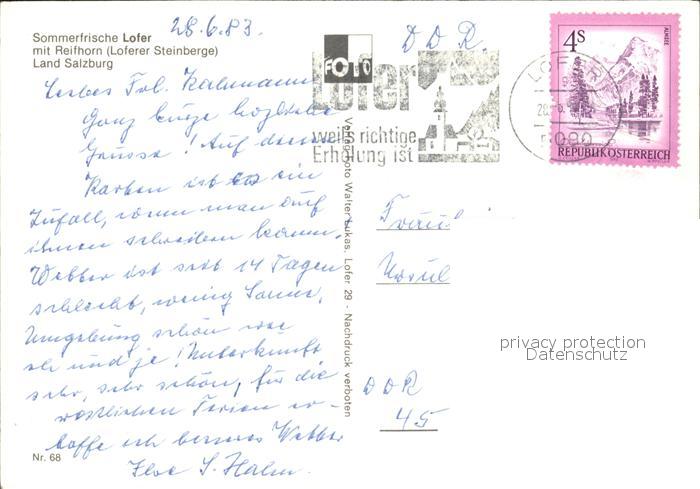 Sommerfrische Lofer
mit Reifhorn (Loferer Steinberge)
Land Salzburg
28.6.83.
D D R.
FOTO
Lofer
weil's richtige
Erholung ist
LOFER
5090
4S
ALMSEE
REPUBLIK ÖSTERREICH
Liebes Frl. Kalmann
Ganz kurze herzliche
Grüsse! Auf diesen
Karten ist es ein
Zufall, wenn man auf
ihnen schreiben kann,
Wetter ist seit 14 Tagen
schlecht, wenig Sonne,
Umgebung schön wie
eh und je! Unterkunft
sehr, sehr schön, für die
restlichen Ferien er-
hoffe ich besseres Wetter
Ilse S. Halm.
Verlag Foto Walter Lukas, Lofer 29 - Nachdruck verboten
Fräul
Ursul
privacy protection
Datenschutz
DDR
45
Nr. 68